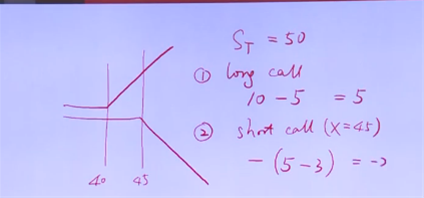 S_T = 50
① long call
10 - 5 = 5
② short call (X = 45)
- (5 - 3) = -2
40 45